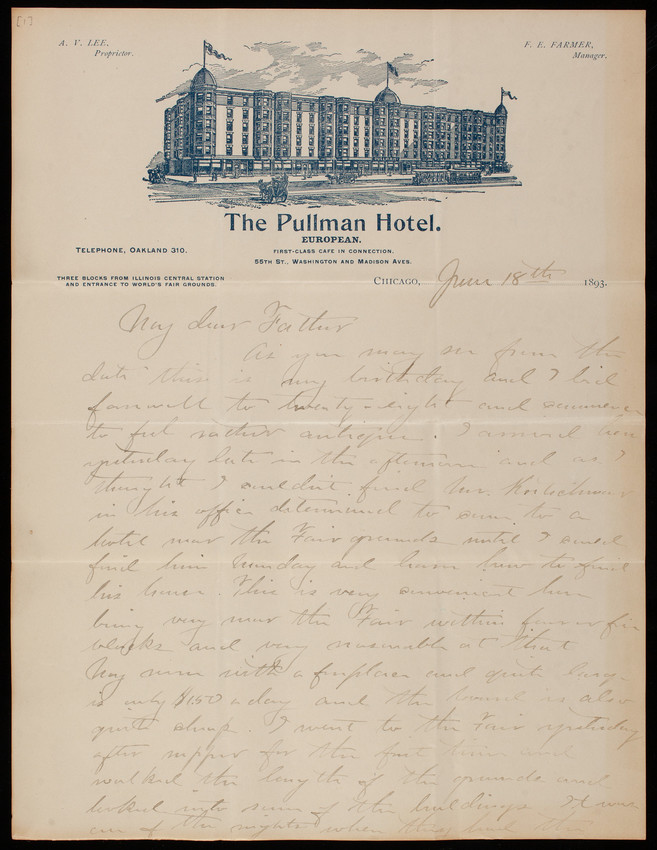 [1]
A. V. LEE,
Proprietor.
F. E. FARMER,
Manager.
The Pullman Hotel.
EUROPEAN.
TELEPHONE, OAKLAND 310.
FIRST-CLASS CAFE IN CONNECTION.
55TH ST., WASHINGTON AND MADISON AVES.
THREE BLOCKS FROM ILLINOIS CENTRAL STATION
AND ENTRANCE TO WORLD'S FAIR GROUNDS.
CHICAGO, June 18th 1893.
My dear Father
As you may see from the
date this is my birthday and I bid
farewell to twenty-eight and commence
to feel rather antique. I arrived here
yesterday late in the afternoon and as I
thought I couldn't find Mr.
in his office determined to come to a
hotel near the Fair grounds until I could
find him Monday and learn how to find
his house. This is very convenient here
being very near the Fair within four or five
blocks and very reasonable at that
My room with a fireplace and quite large
is only $1.50 a day and the board is also
quite cheap. I went to the Fair yesterday
after supper for the first time and
walked the length of the grounds and
looked into some of the buildings. It was
one of the nights when they had the